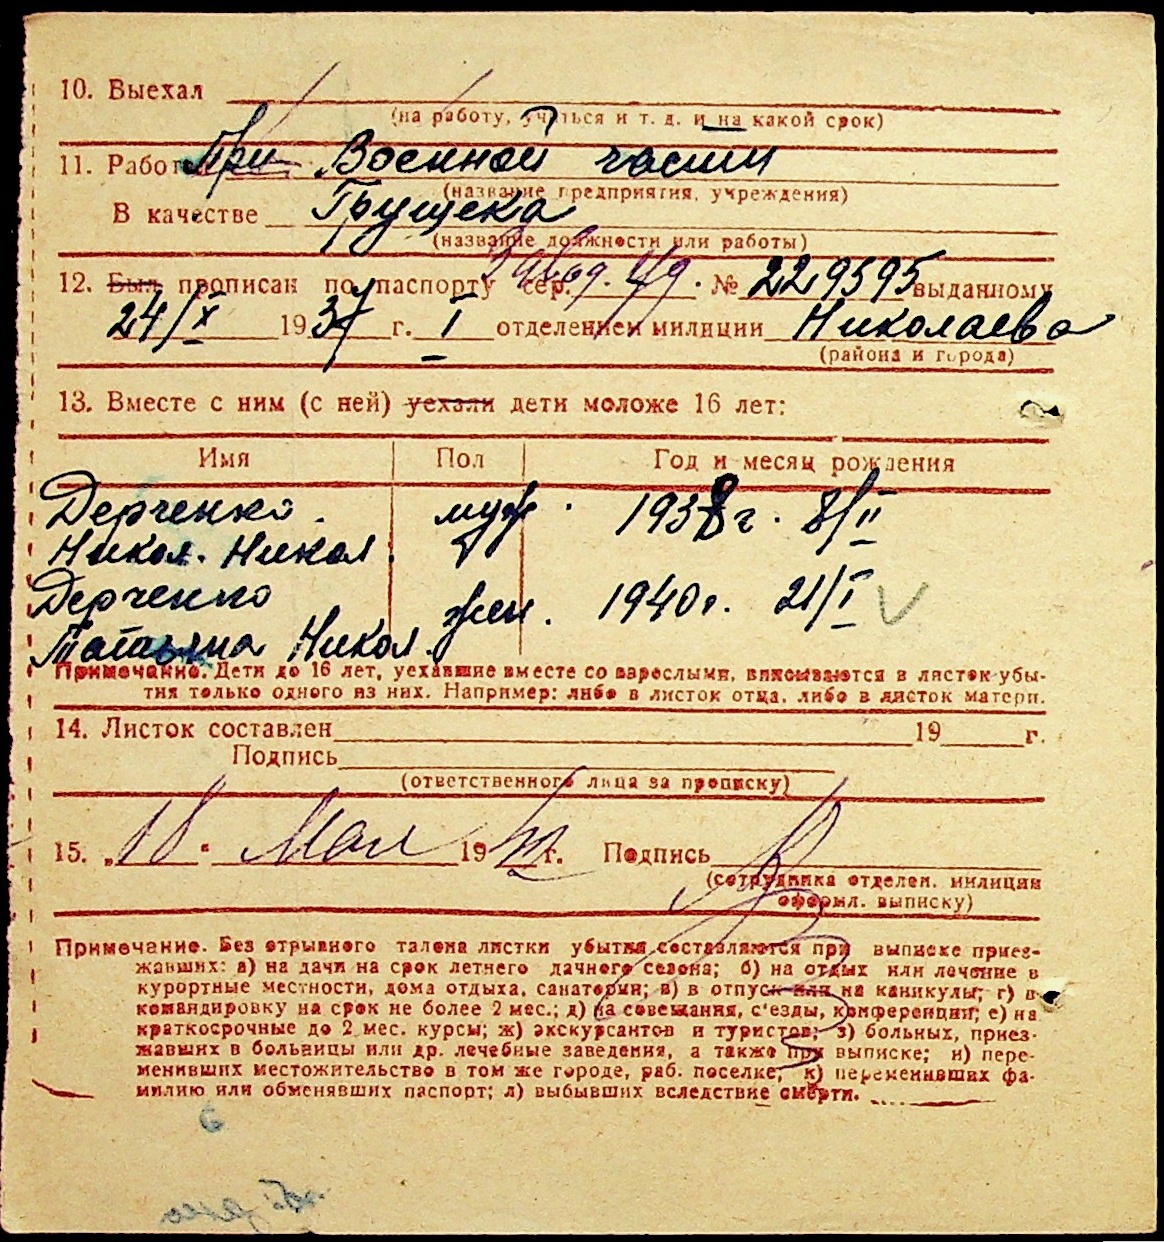 10. Выехал
(на работу, учиться и т. д. и на какой срок)
11. Работ При Военной части
(название предприятия, учреждения)
В качестве Грущека
(название должности или работы)
12. Был прописан по паспорту сер. № 229595 выданному
24/X 1937 г. I отделением милиции Николаева
(района и города)
13. Вместе с ним (с ней) уехали дети моложе 16 лет:
Имя Пол Год и месяц рождения
Дерченко муж. 1938 г. 8/II
Никол. Никол.
Дерченко жен. 1940 г. 21/I
Татьяна Никол.
Примечание. Дети до 16 лет, уехавшие вместе со взрослыми, вписываются в листок убы-
тия только одного из них. Например: либо в листок отца, либо в листок матери.
14. Листок составлен 19 г.
Подпись
(ответственного лица за прописку)
15. „18" Мая 19 г. Подпись
(сотрудника отделен. милиции
оформл. выписку)
Примечание. Без отрывного талона листки убытия составляются при выписке приез-
жавших: а) на дачи на срок летнего дачного сезона; б) на отдых или лечение в
курортные местности, дома отдыха, санатории; в) в отпуск или на каникулы; г) в
командировку на срок не более 2 мес.; д) на совещания, с'езды, конференции; е) на
краткосрочные до 2 мес. курсы; ж) экскурсантов и туристов; з) больных, приез-
жавших в больницы или др. лечебные заведения, а также при выписке; и) пере-
менивших местожительство в том же городе, раб. поселке; к) переменивших фа-
милию или обменявших паспорт; л) выбывших вследствие смерти.
6